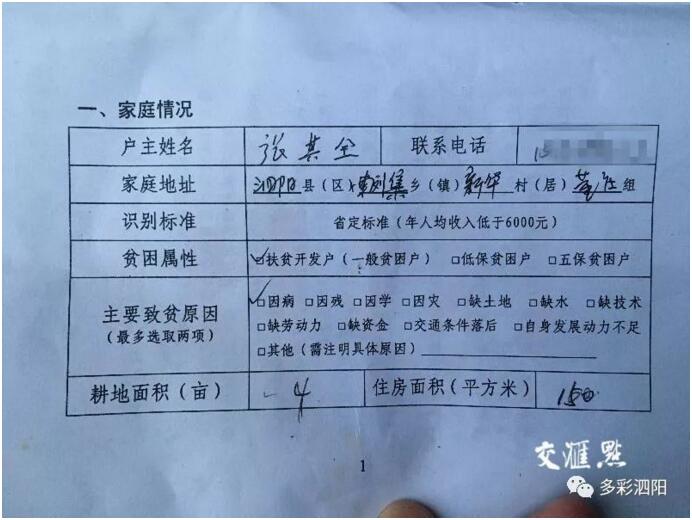 一、家庭情况
户主姓名 张其全 联系电话 15
家庭地址 泗阳县(区)刘集乡(镇)新华村(居)组
识别标准 省定标准(年人均收入低于6000元)
贫困属性 ☑扶贫开发户(一般贫困户) □低保贫困户 □五保贫困户
主要致贫原因
(最多选取两项)
☑因病 □因残 □因学 □因灾 □缺土地 □缺水 □缺技术
□缺劳动力 □缺资金 □交通条件落后 □自身发展动力不足
□其他(需注明具体原因)
耕地面积(亩) 4 住房面积(平方米) 150
1
交汇點
多彩泗阳